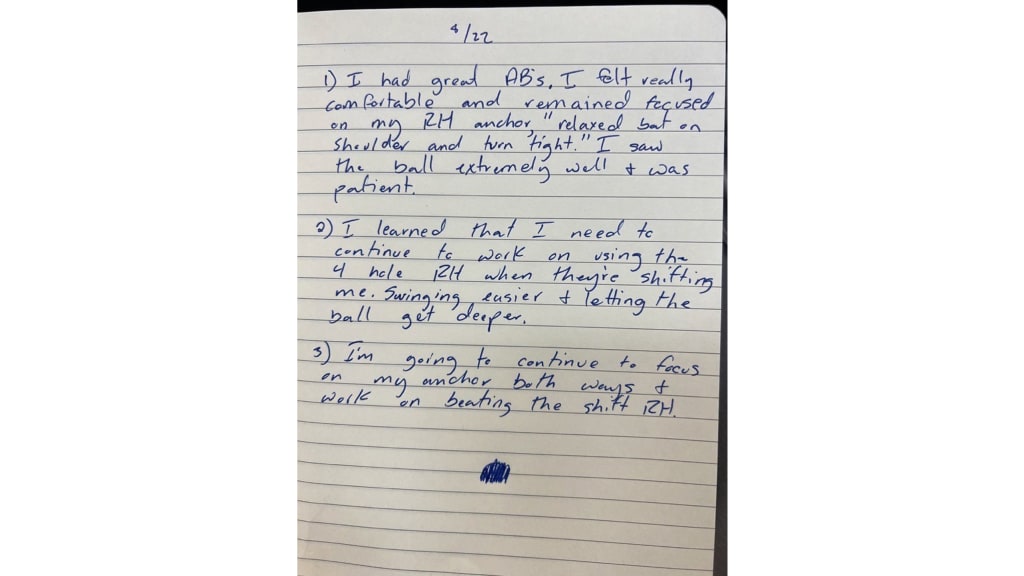 8/22
1) I had great AB's. I felt really
comfortable and remained focused
on my RH anchor, "relaxed bat on
shoulder and turn tight." I saw
the ball extremely well & was
patient.
2) I learned that I need to
continue to work on using the
4 hole RH when they're shifting
me. Swinging easier & letting the
ball get deeper.
3) I'm going to continue to focus
on my anchor both ways &
work on beating the shift RH.